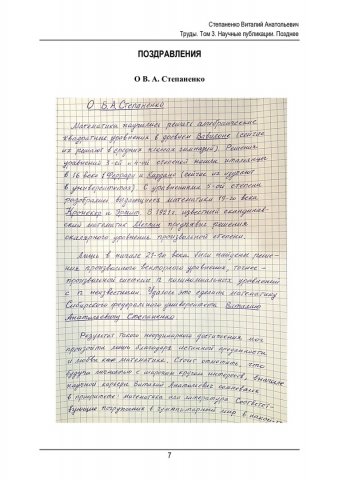 Степаненко Виталий Анатольевич
Труды. Том 3. Научные публикации. Позднее
ПОЗДРАВЛЕНИЯ
О В. А. Степаненко
О В.А. Степаненко
Математики научились решать алгебраические
квадратные уравнения в древнем Вавилоне (сейчас
их решают в средних классах гимназий). Решения
уравнений 3-ей и 4-ой степеней нашли итальянцы
в 16 веке (Феррари и Кардано) (сейчас их изучают
в университетах). С уравнениями 5-ой степени
разобрались выдающиеся математики 19-го века
Кронекер и Эрмит. В 1921 г. известный скандинав-
ский математик Меллин предъявил решения
скалярного уравнения произвольной степени.
Лишь в начале 21-го века были найдены реше-
ния произвольного векторного уравнения, точнее -
произвольной системы n полиномиальных уравнений
с n неизвестными. Удалось это сделать математику
Сибирского федерального университета Виталию
Анатольевичу Степаненко
Результат такой неординарный достижения, мог
произойти лишь благодаря истинной преданности
и любви к математике. Стоит отметить, что
будучи личностью с широким кругом интересов, вначале
научной карьеры Виталий Анатольевич сомневался
в приоритете: математика или литература. Соответст-
вующие погружения в гуманитарный мир в
7